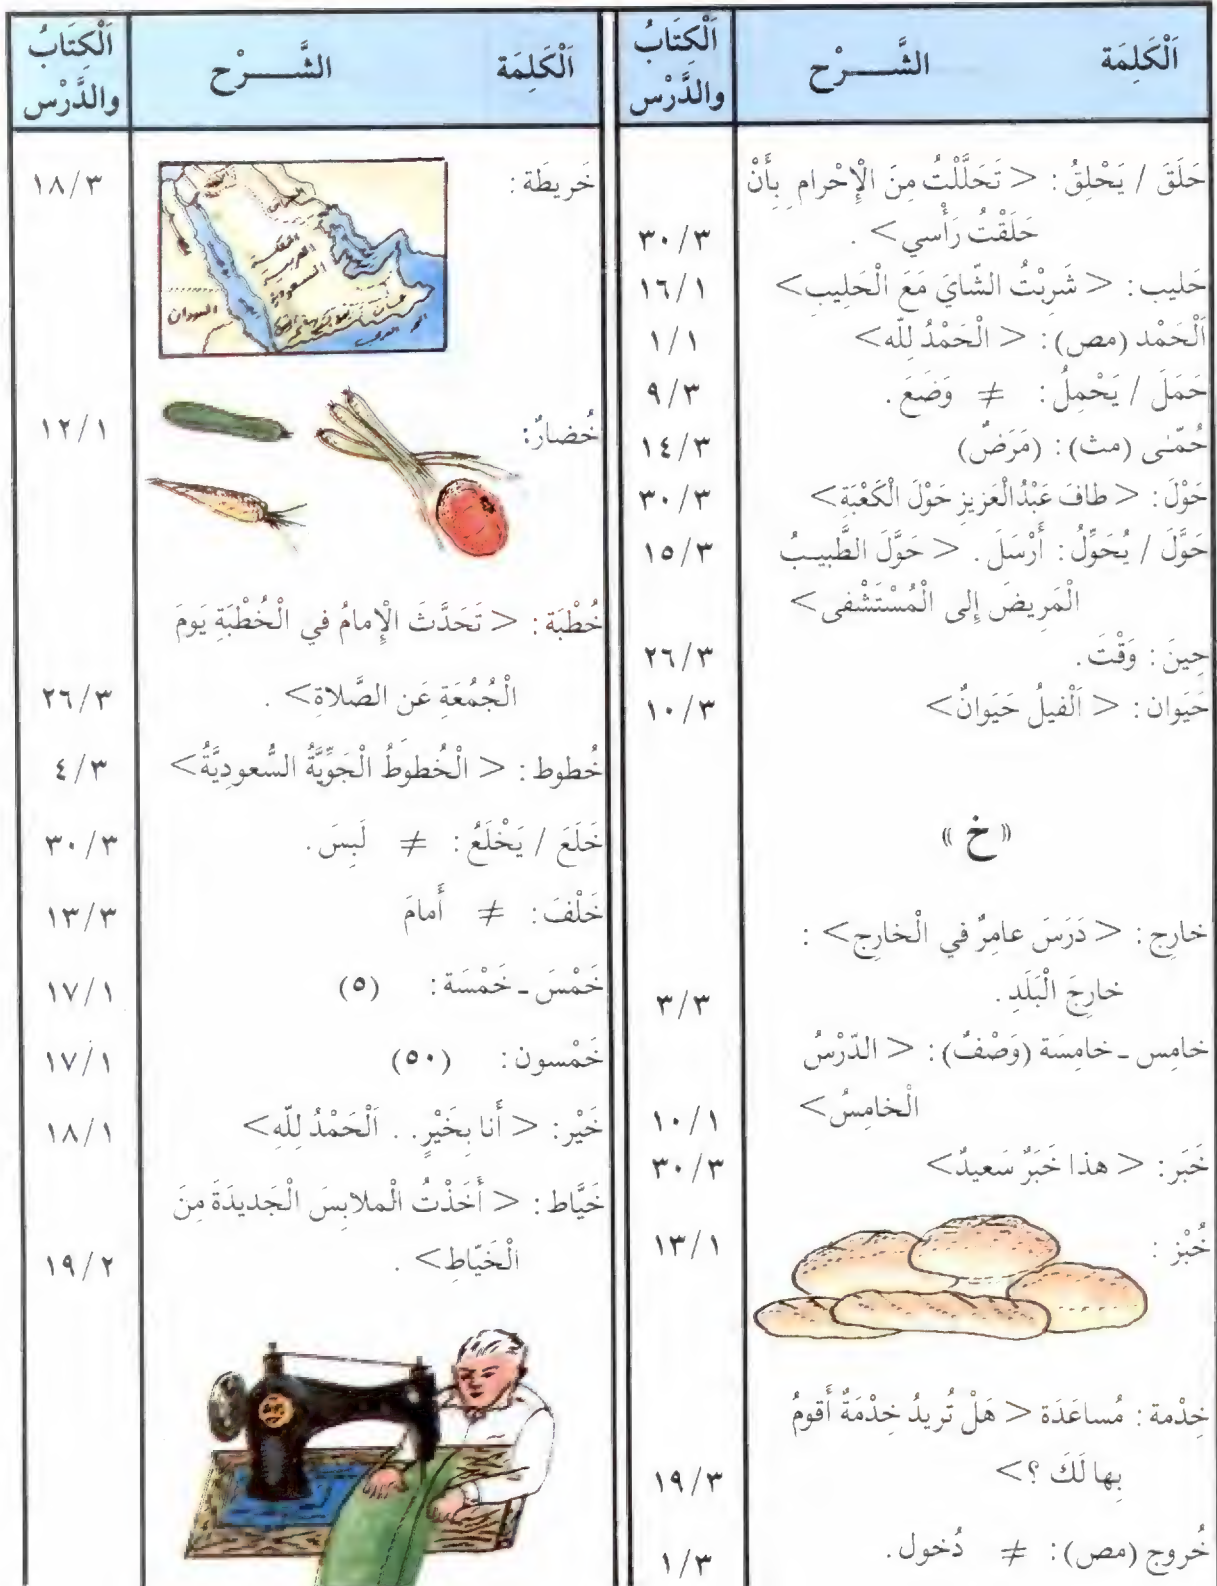 اَلْكَلِمَة الشَّـــرْح اَلْكِتَابُ والدَّرْس
حَلَقَ / يَحْلِقُ : < تَحَلَّلْتُ مِنَ الْإِحْرام بِأَنْ
حَلَقْتُ رَأْسي> . ٣٠/٣
حَليب : < شَرِبْتُ الشّايَ مَعَ الْحَلِيبِ> ١٦/١
اَلْحَمْد (مص) : < الْحَمْدُ لِلّه> ١/١
حَمَلَ / يَحْمِلُ : ≠ وَضَعَ . ٩/٣
حُمّى (مث) : (مَرَضٌ) ١٤/٣
حَوْلَ : < طافَ عَبْدُالْعَزيزِ حَوْلَ الْكَعْبَةِ> ٣٠/٣
حَوَّلَ / يُحَوِّلُ : أَرْسَلَ . < حَوَّلَ الطَّبيبُ ١٥/٣
الْمَرِيضَ إِلى الْمُسْتَشْفى>
حِينَ : وَقْتَ . ٢٦/٣
حَيَوان : < اَلْفيلُ حَيَوانٌ> ١٠/٣
« خ »
خارِج : < دَرَسَ عامِرٌ في الْخارِج> :
خارِجَ الْبَلَدِ . ٣/٣
خامِس ـ خامِسَة (وَصْفٌ) : < الدَّرْسُ
الْخامِسُ> ١٠/١
خَبَر : < هذا خَبَرٌ سَعيدٌ> ٣٠/٣
خُبْز : ١٣/١
خِدْمة : مُساعَدَة < هَلْ تُريدُ خِدْمَةً أَقومُ
بِها لَكَ ؟> ١٩/٣
خُروج (مص) : ≠ دُخول . ١/٣
اَلْكَلِمَة الشَّـــرْح اَلْكِتَابُ والدَّرْس
خَريطَة : ١٨/٣
السودان
خُضارٌ : ١٢/١
خُطْبَة : < تَحَدَّثَ الْإِمامُ في الْخُطْبَةِ يَومَ
الْجُمُعَةِ عَن الصَّلاةِ> . ٢٦/٣
خُطوط : < الْخُطوطُ الْجَوِّيَّةُ السُّعودِيَّةُ> ٤/٣
خَلَعَ / يَخْلَعُ : ≠ لَبِسَ . ٣٠/٣
خَلْفَ : ≠ أَمامَ ١٣/٣
خَمْسَ ـ خَمْسَة : (٥) ١٧/١
خَمْسون : (٥٠) ١٧/١
خَيْر : < أَنا بِخَيْرٍ . . اَلْحَمْدُ لِلّهِ> ١٨/١
خَيَّاط : < أَخَذْتُ الْملابِسَ الْجَديدَةَ مِنَ
الْخَيّاطِ> . ١٩/٢